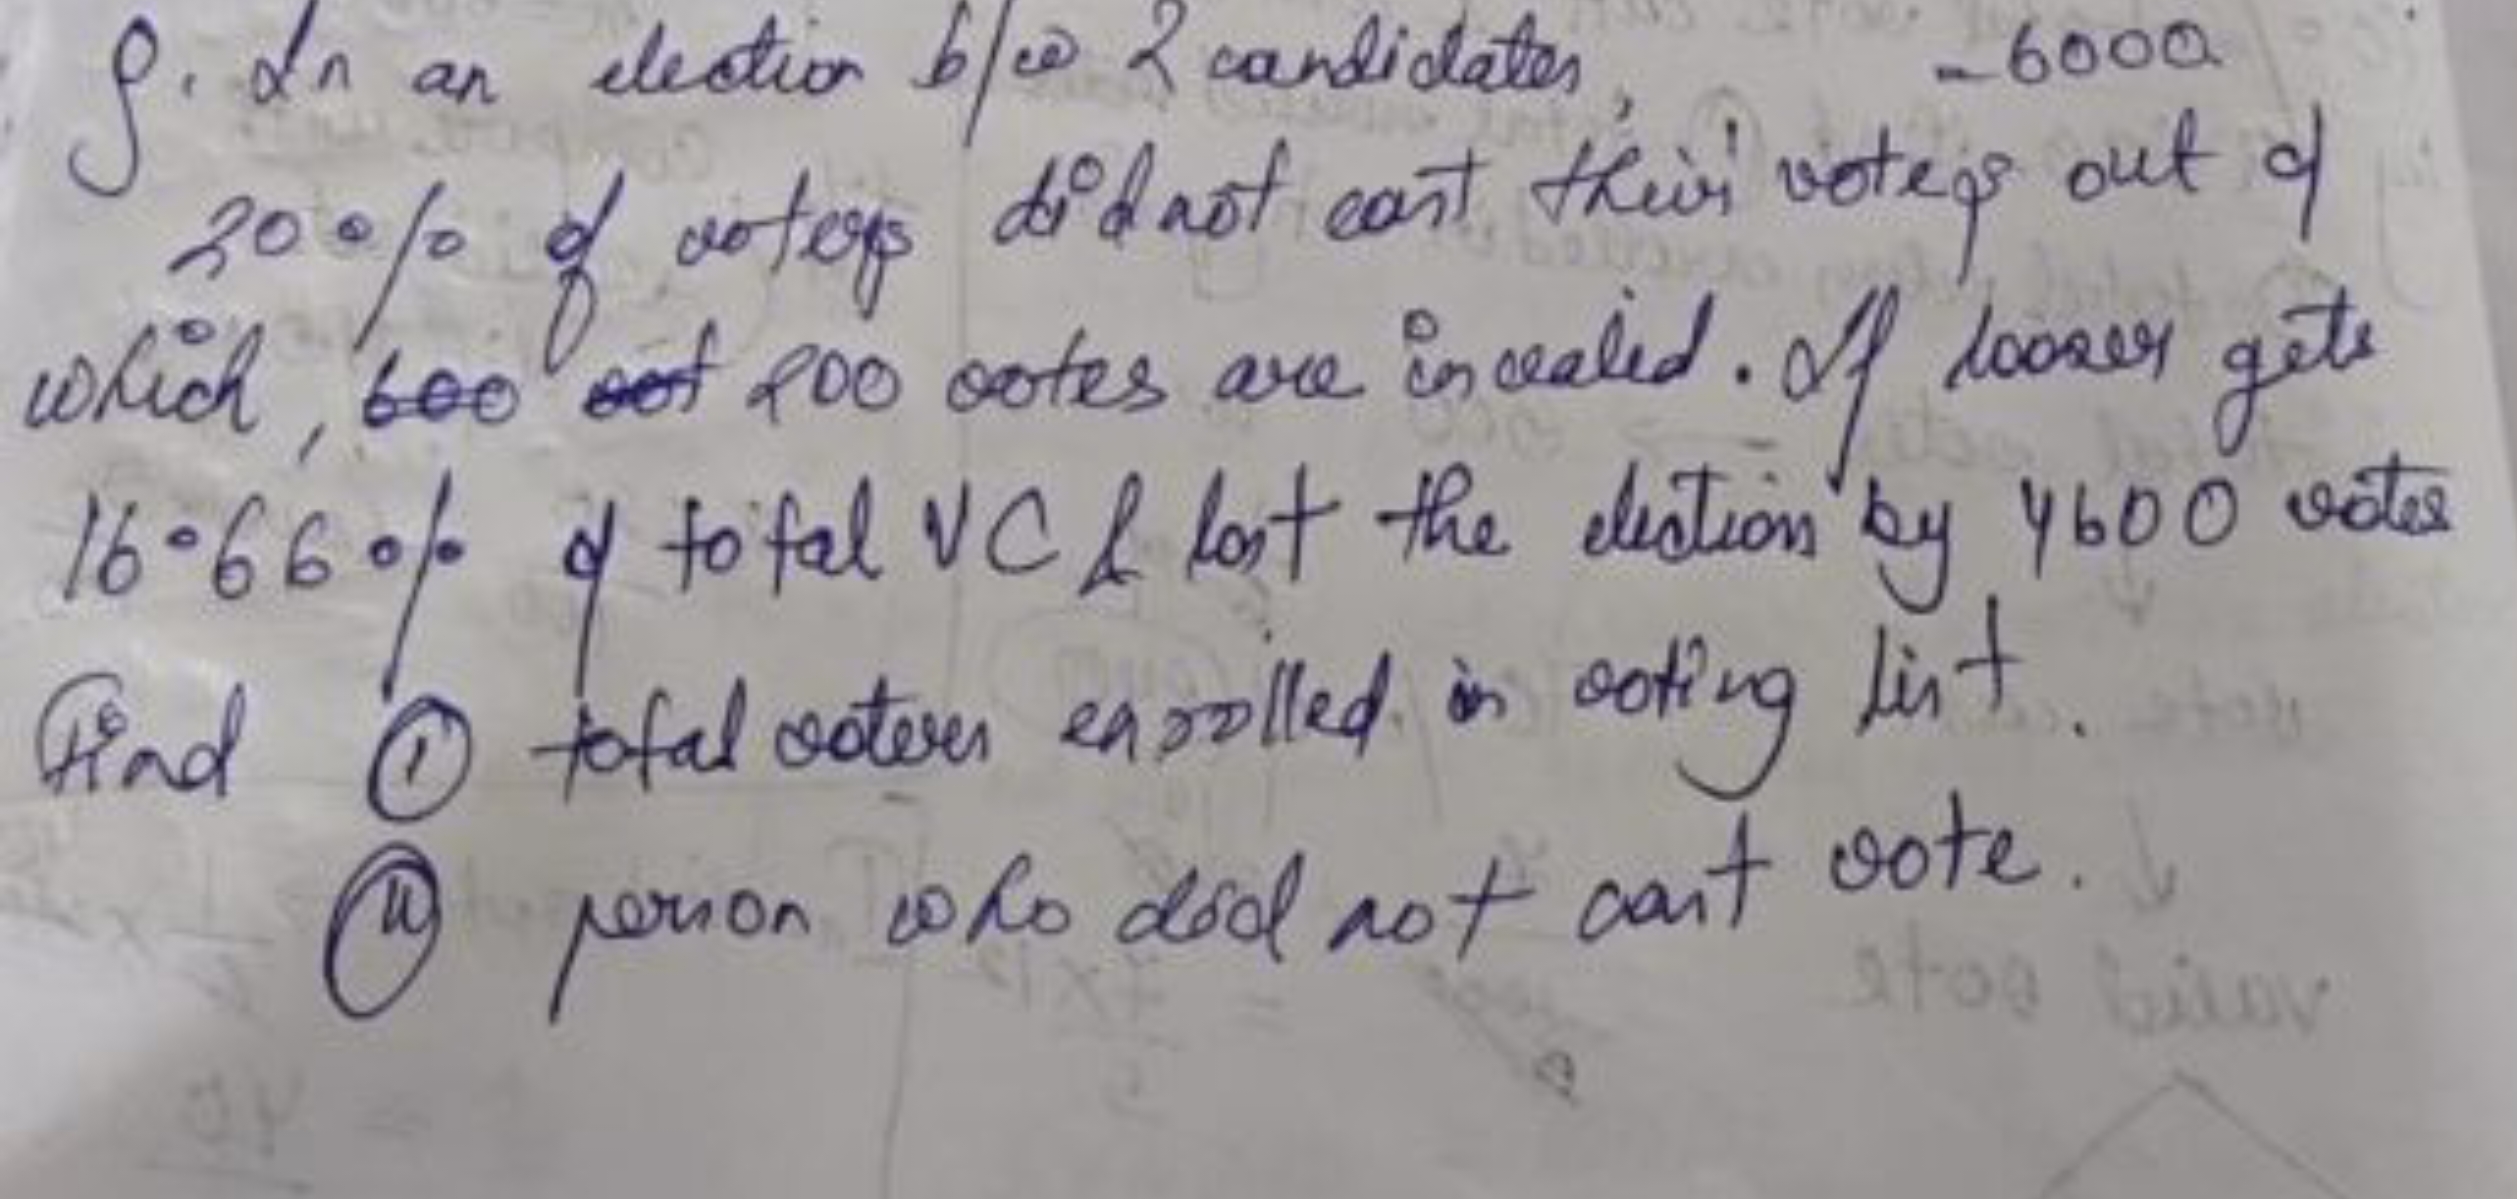 Q. In an election b/w 2 candidates, - 6000
20% of voters did not cast their voters out of
which, 600 not 200 votes are invalied. If looser gets
16.66% of total VC & lost the election by 4600 votes
Find (i) total voters enrolled in voting list.
(ii) person who did not cast vote.
valid vote